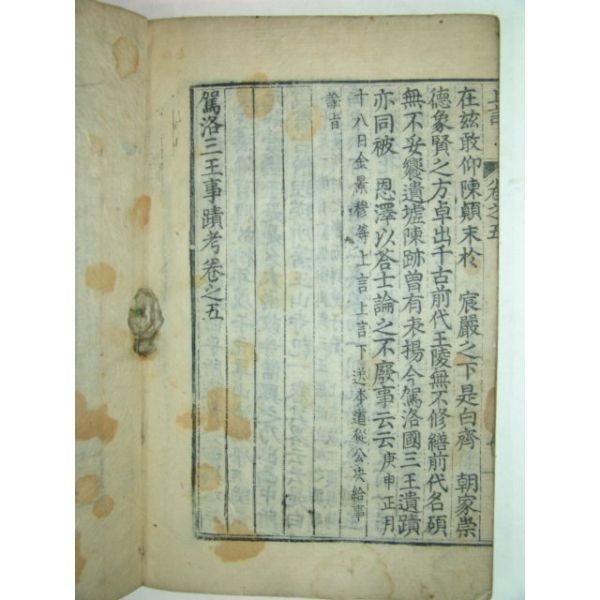 上言 卷之五
在玆敢仰陳顚末於 宸嚴之下是白齊 朝家崇
德象賢之方卓出千古前代王陵無不修繕前代名碩
無不妥遺墟陳跡曾有表揚今駕洛國三王遺蹟
亦同被 恩澤以荅士論之不廢事云云 庚申正月
十八日金景穆等上言上言下送本道從公決給事
蒙旨
駕洛三王事蹟考卷之五